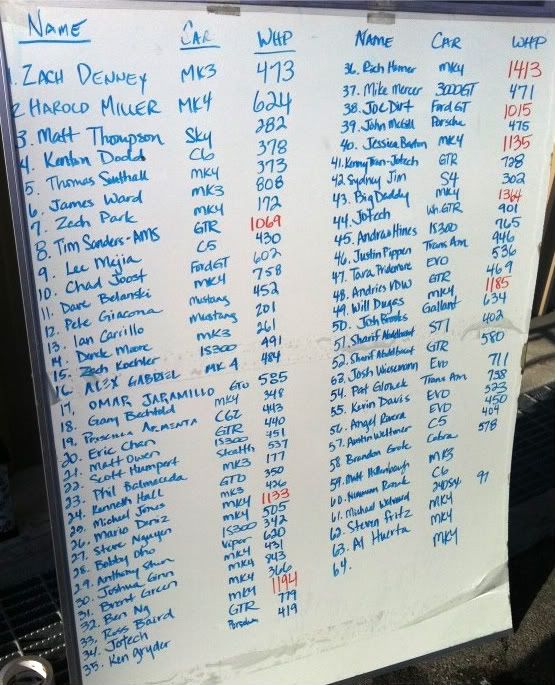 NAME CAR WHP
1. ZACH DENNEY MK3 473
2 HAROLD MILLER MK4 624
3. Matt Thompson Sky 282
4. Kenton Dodd C6 378
5. Thomas Southall MK4 373
6. James Ward MK3 808
7. Zach Park MK4 172
8. Tim Sanders-AMS GTR 1069
9. Lee Mejia C5 430
10. Chad Joost FordGT 602
11. Dave Belanski MK4 758
12. Pete Giacona Mustang 452
13. Ian Carrillo Mustang 201
14. Derek Moore MK3 261
15. Zach Koehler IS300 491
16. ALEX GABRIEL MK4 484
17. OMAR JARAMILLO GTO 585
18. Gary Bechtold MK4 348
19. PRISCILLA ARMENTA C6Z 443
20. Eric Chan GTR 440
21. Matt Owen IS300 451
22. Scott Humpert Stealth 537
23. Phil Balmaceda MK3 177
24. Kenneth Hall GTO 350
25. Michael Jones MK3 426
26. Mario Deniz MK4 1133
27. Steve Nguyen MK4 505
28. Bobby Dho IS300 342
29. Anthony Shen Viper 620
30. Joshua Ginn MK4 431
31. Brent Green MK4 843
32. Ben Ng MK4 366
33. Ross Baird MK4 1194
34. Jotech GTR 779
35. Ken Gryder Porsche 419
NAME CAR WHP
36. Rich Homer MK4 1413
37. Mike Mercer 3000GT 471
38. Joe Dirt Ford GT 1015
39. John McGill Porsche 475
40. Jessica Barton MK4 1135
41. Kenny Tran-Jotech GTR 728
42. Sydney Jim S4 302
43. Big Daddy MK4 1364
44. Jotech Wh.GTR 901
45. Andrew Hines IS300 765
46. Justin Pippen Trans Am 946
47. Tara Pridemore EVO 536
48. Andries VDW GTR 469
49. Will Dugas MK4 1185
50. Josh Brooks Gallant 634
51. Sharif Abdelbaset STI 402
52. Sharif Abdelbaset GTR 580
53. Josh Wiesemann Evo 711
54. Pat Glonek Trans Am 738
55. Kevin Davis EVO 523
56. Angel Rivera EVO 450
57. Austin Weltmer C5 404
58 Brandon Grote Cobra 578
59. Matt MK3
60. C6
61. Michael 240SX 97
62. Steven Fritz MK4
63. Al Huerta MK4
64. MK4